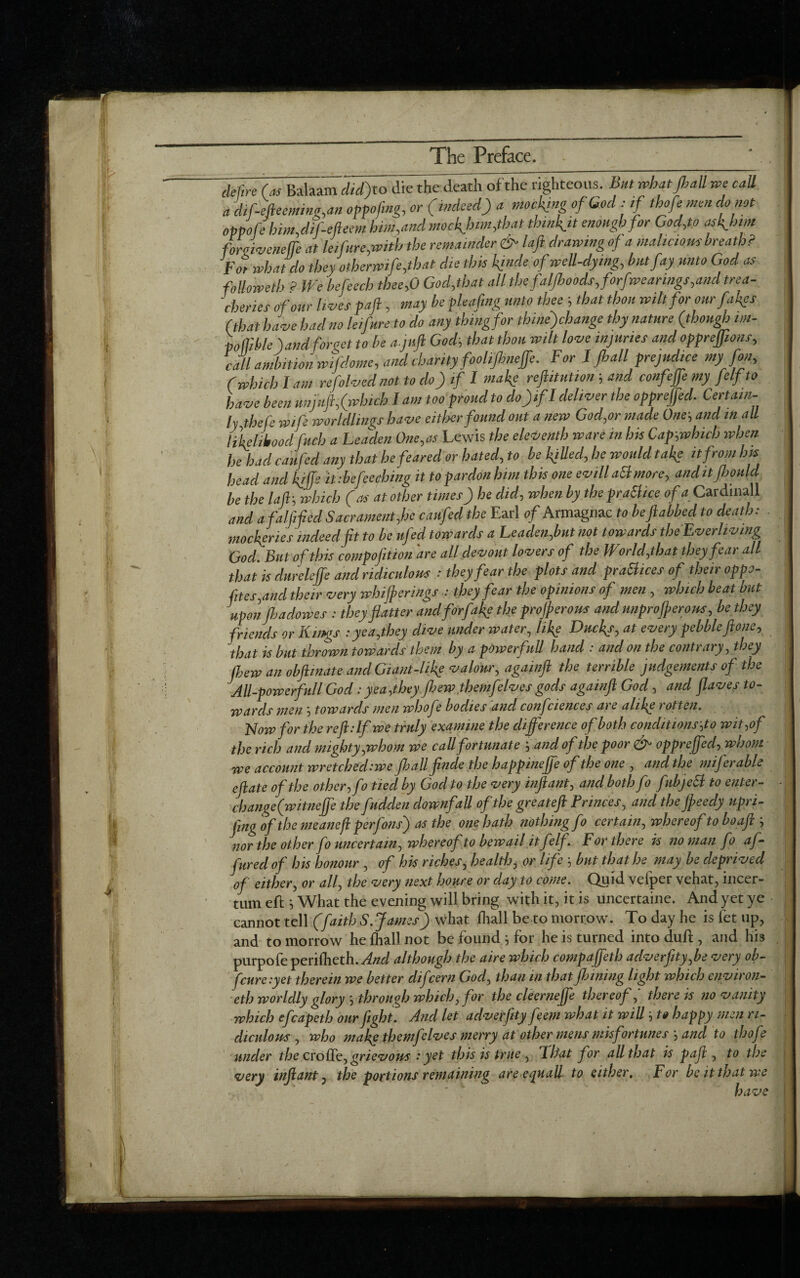 The Preface.
desire (as Balaam did)to die the death of the righteous. But what shall we call
a dis-esteeming,an opposing, or (indeed) a mocking of God : if those men do not
oppose him,dis-esteem him,and mock him,that think it enough for God,to ask him
forgivenesse at leisure,with the remainder & last drawing of a malicious breath?
For what do they otherwise,that die this kinde of well-dying, but say unto God as
followeth ? We beseech thee,O God,that all the falshoods,forswearings,and trea-
cheries of our lives past , may be pleasing unto thee ; that thou wilt for our sakes
(that have had no leisure to do any thing for thine)change thy nature (though im-
possible )and forget to be a just God; that thou wilt love injuries and oppressions,
call ambition wisdome, and charity foolishnesse. For I shall prejudice my son,
(which I am resolved not to do) if I make restitution ; and confesse my self to
have been unjust,(which I am too proud to do)if I deliver the oppressed. Certain-
ly,these wise worldlings have either found out a new God,or made One; and in all
likelihood such a Leaden One,as Lewis the eleventh ware in his Cap;which when
he had caused any that he feared or hated, to be killed, he would take it from his
head and kisse it :beseeching it to pardon him this one evill act more, and it should
be the last; which (as at other times) he did, when by the practice of a Cardinall
and a falsified Sacrament,he caused the Earl of Armagnac to be stabbed to death:
mockeries indeed fit to be used towards a Leaden,but not towards the Everliving
God. But of this composition are all devout lovers of the World,that they fear all
that is durelesse and ridiculous : they fear the plots and practices of their oppo-
sites,and their very whisperings : they fear the opinions of men , which beat but
upon shadowes : they flatter and forsake the prosperous and unprosperous, be they
friends or Kings : yea,they dive under water, like Ducks, at every pebble stone,
that is but thrown towards them by a powerfull hand : and on the contrary, they
shew an obstinate and Giant-like valour, against the terrible judgements of the
All-powerfull God : yea,they shew themselves gods against God , and slaves to-
wards men ; towards men whose bodies and consciences are alike rotten.
Now for the rest:If we truly examine the difference of both conditions;to wit,of
the rich and mighty,whom we call fortunate ; and of the poor & oppressed, whom
we account wretched:we shall finde the happinesse of the one , and the miserable
estate of the other,so tied by God to the very instant, and both so subject to enter-
change(witnesse the sudden downfall of the greatest Princes, and the speedy upri-
sing of the meanest persons) as the one hath nothing so certain, whereof to boast ;
nor the other so uncertain, whereof to bewail it self. For there is no man so as-
sured of his honour , of his riches, health, or life ; but that he may be deprived
of either, or all, the very next houre or day to come. Quid vesper vehat, incer-
tum est ; What the evening will bring with it, it is uncertaine. And yet ye
cannot tell (saith S. James) what shall be to morrow. To day he is set up,
and to morrow he shall not be found ; for he is turned into dust , and his
purpose perisheth. And although the aire which compasseth adversity,be very ob-
scure:yet therein we better discern God, than in that shining light which environ-
eth worldly glory ; through which, for the cleernesse thereof , there is no vanity
which escapeth our sight. And let adversity seem what it will ; to happy men ri-
diculous , who make themselves merry at other mens misfortunes ; and to those
under the crosse, grievous : yet this is true , That for all that is past , to the
very instant , the portions remaining are equall to either. For be it that we
have